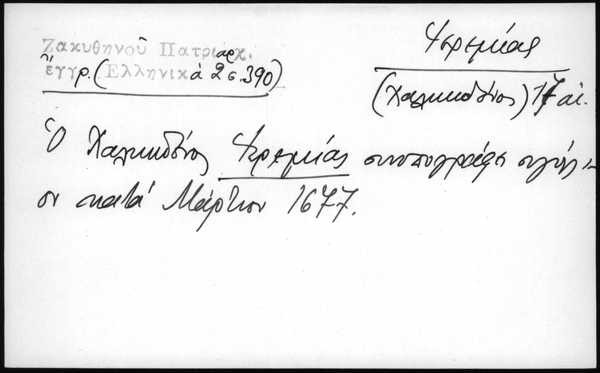 Ζακυθηνοῦ Πατριαρχ.
ἔγγρ. (Ἑλληνικὰ 2 σ. 390)
Ἱερεμίας
(Χαλκηδόνος) 17 αἰ.
Ὁ Χαλκηδόνος Ἱερεμίας συνυπογράφει
κατὰ Μάρτιον 1677.